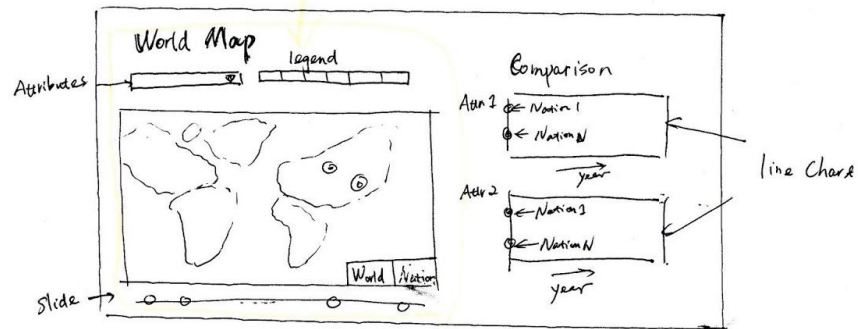 World Map
Attributes
legend
World
Nation
Slide
Comparison
Attr 1
Nation 1
Nation N
year
Attr 2
Nation 1
Nation N
year
line Chart